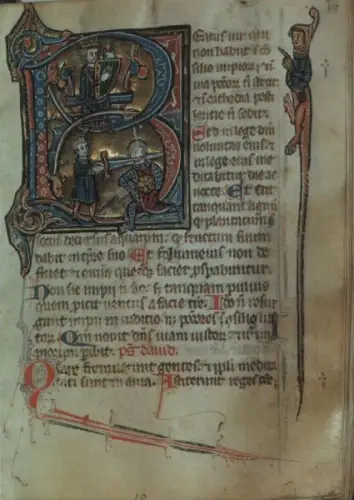 Beatus uir qui
non habiit i co
silio impior & i
uia pctor n stetit
& i cathedra pesti
lentie n sedit
Sed in lege dni
uoluntas eius &
in lege eius me
ditabitur die ac
nocte Et erit
tanquam lignum
qd plantatum ē
secus decursus aquarum: qd fructum suum
dabit in tpre suo Et folium eius non de
fluet & omia quecūq faciet prospabuntur
Non sic impii n sic: s; tanquam puluis
quem proicit uentus a facie tre. Ido n resur
gunt impii in iuditio: n pctores i cosilio ius
tor. Qm nouit dns uiam iustor: & iter im
piorum pibit. ps dauid.
Quare fremuerunt gentes: & ppli medi
tati sunt inania. Astiterunt reges tre